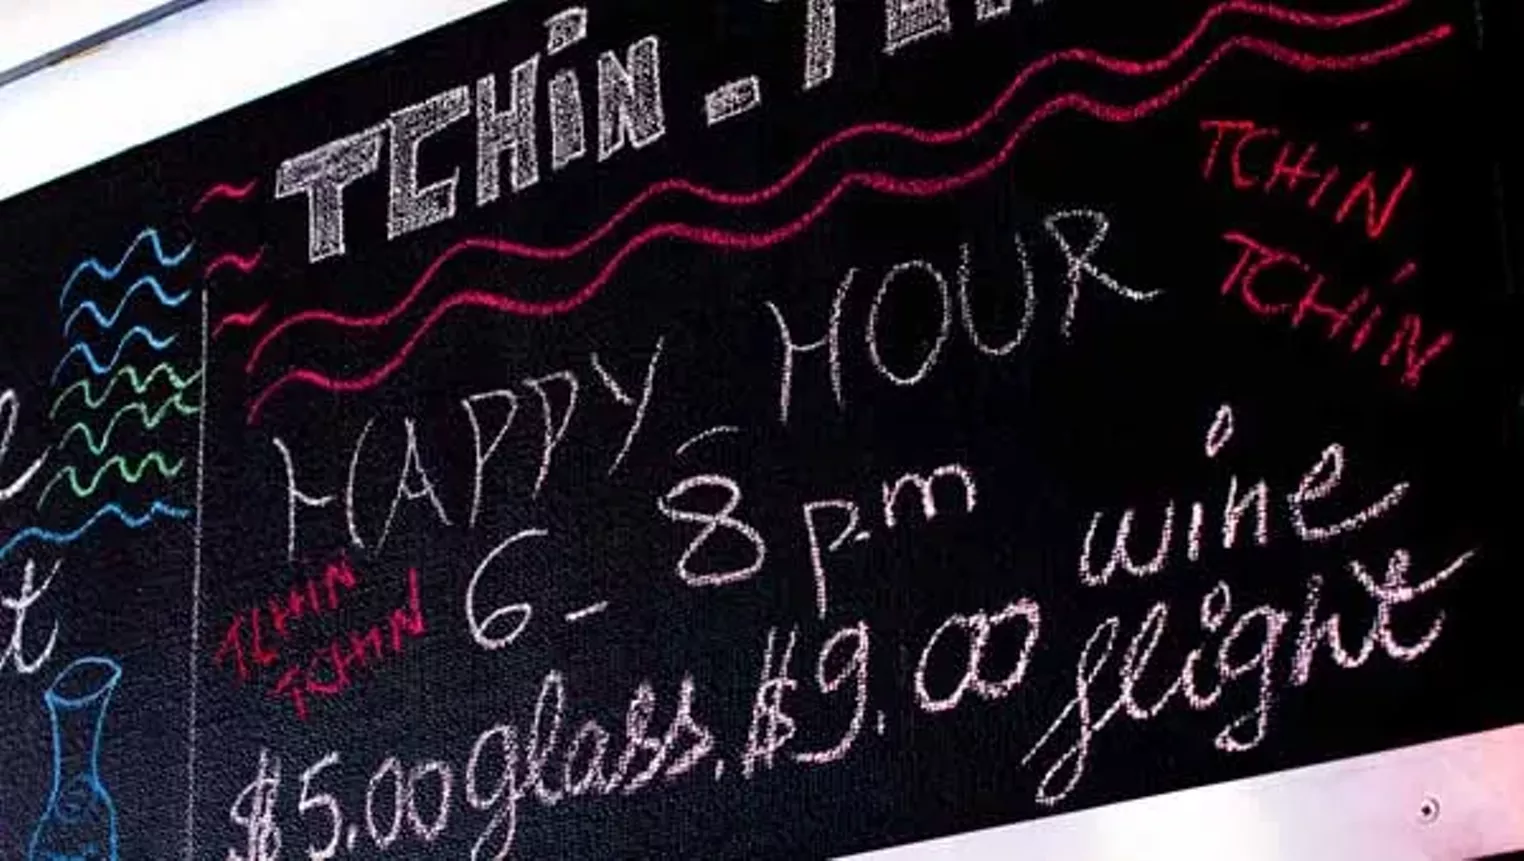 TCHiN -
TCHiN
TCHiN
HAPPY HOUR
6 - 8 p.m
TCHIN
TCHIN
wine
flight
$5.00 glass. $9.00
t